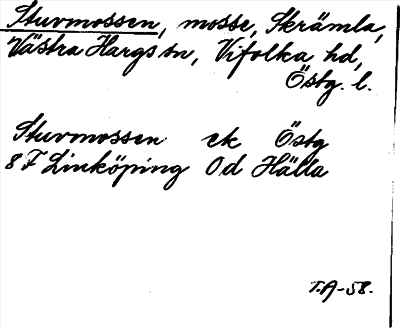 Sturmossen, mosse, Skrämla,
Västra Hargs sn, Vifolka hd,
Östg. l.
Sturmossen ek Östg
8 F Linköping 0d Hälla
T.A-58.